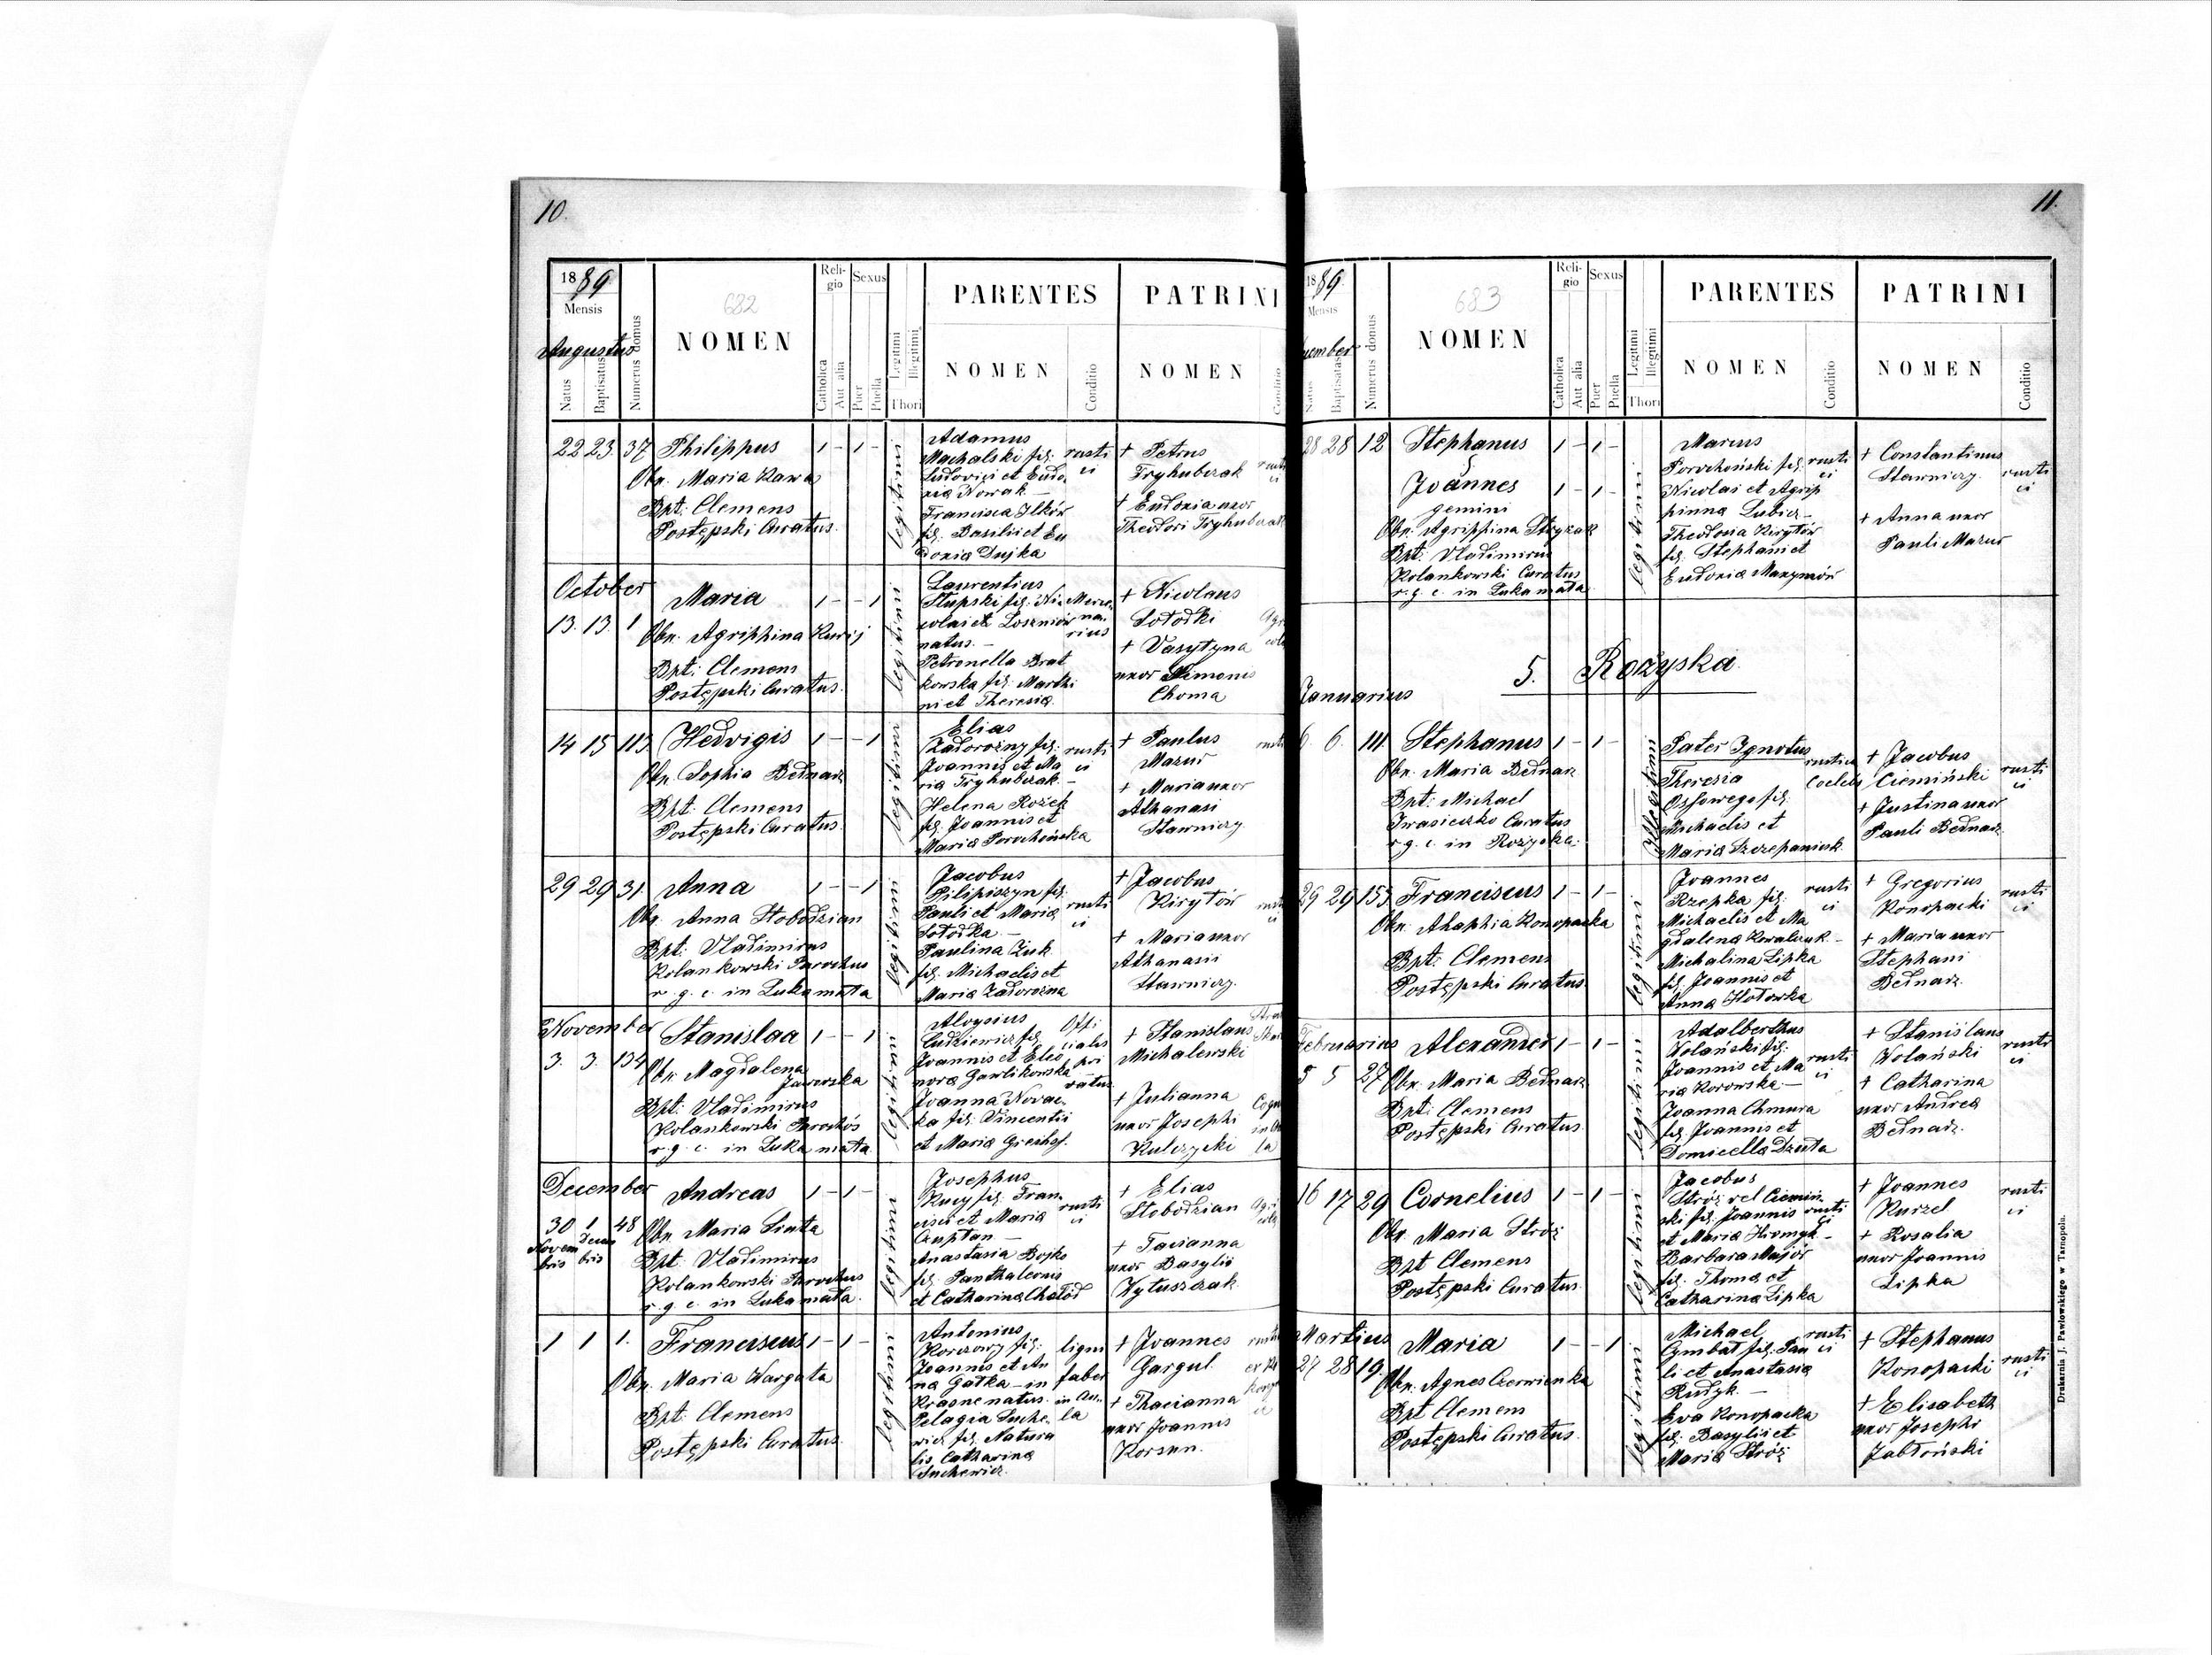 10.
1889
Mensis
Augustus
Natus
Baptisatus
Numerus domus
682
NOMEN
Religio
Catholica
Aut alia
Sexus
Puer
Puella
Legitimi
Illegitimi
Thori
PARENTES
NOMEN
Conditio
PATRINI
NOMEN
22 23. 37 Philippus 1 - 1 -
Obn. Maria Kawa
Bpt. Clemens
Postępski Curatus.
legitimi
Adamus
Machalski fil:
Ludovici et Eudo
xia Nowak —
Francisca Ilków
fil: Basilii et Eu
doxia Dujka
rusti
ci
+ Petrus
Tryhubczak
+ Eudoxia uxor
Theodori Tryhubczak
rusti
ci
October
13. 13. 1 Maria 1 - - 1
Obn. Agriphina Kurij
Bpt: Clemens
Postępski Curatus.
legitimi
Laurentius
Słupski fil: Ni
colai et Loszniów
natus. —
Petronella Brat
kowska fil: Marti
ni et Theresia.
Merce
na
rius
+ Nicolaus
Sołodki
+ Vasytyna
uxor Simonis
Choma
14 15 113. Hedvigis 1 - - 1
Obn. Sophia Bednarz
Bpt: Clemens
Postępski Curatus.
legitimi
Elias
Zadorożny fil:
Joannis et Ma
ria Tryhubczak —
Helena Rożek
fil: Joannis et
Maria Porochońska
rusti
ci
+ Paulus
Mazur
+ Maria uxor
Athanasi
Stawniczy
29 29 31. Anna 1 - - 1
Obn. Anna Słobodzian
Bpt: Vladimirus
Kolankowski Parochus
r. g. c. in Łuka mała
legitimi
Jacobus
Pilipiszyn fil:
Pauli et Maria
Sołodka. —
Paulina Czuk
fil: Michaelis et
Maria Zadorożna
rusti
ci
+ Jacobus
Kiryłów
+ Maria uxor
Athanasii
Stawniczy.
November
3. 3. 134 Stanislaa 1 - - 1
Obn. Magdalena
Jaworska
Bpt: Vladimirus
Kolankowski Parochus
r. g. c. in Łuka mała
legitimi
Aloysius
Ludkiewicz fil:
Joannis et Eleo
nora Gawlikowska
Joanna Novac
ka fil: Vincentii
et Maria Greshof.
Offi
cialis
pri
vatus
+ Stanislaus
Michalewski
+ Julianna
uxor Josephi
Kulczycki
December
30 Novembris 1 Decembris 48 Andreas 1 - 1 -
Obn Maria Siuta
Bpt. Vladimirus
Kolankowski Parochus
r. g. c. in Łuka mała.
legitimi
Josephus
Kucy fil: Fran
cisci et Maria
Czuptan —
Anastasia Bojko
fil: Panthaleonis
et Catharina Chołod
rusti
ci
+ Elias
Słobodzian
+ Tacianna
uxor Basylio
Wytuszczak
1 1 1. Franciscus 1 - 1 -
Obn. Maria Wargata
Bpt: Clemens
Postępski Curatus.
legitimi
Antonius
Korczowy fil:
Joannis et An
na Gałka — in
Krasne natus.
Pelagia Suche
wicz fil: Natura
lis Catharina
Suchewicz.
ligni
faber
in Au
la
+ Joannes
Gargul.
+ Thacianna
uxor Joannis
Korsun.
11.
1889.
Mensis
Natus
Baptisatus
Numerus domus
683
NOMEN
Religio
Catholica
Aut alia
Sexus
Puer
Puella
Legitimi
Illegitimi
Thori
PARENTES
NOMEN
Conditio
PATRINI
NOMEN
Conditio
28 28 12 Stephanus 1 - 1 -
Joannes 1 - 1 -
gemini
Obn. Agriphina Stryzak
Bpt: Vladimirus
Kolankowski Curatus
r. g. c. in Łuka mała
legitimi
Marcus
Porochoński fil:
Nicolai et Agrip
pinna Lubicz —
Theodosia Kiryłów
fil: Stephani et
Eudoxia Maxymów
rusti
ci
+ Constantinus
Stawniczy.
+ Anna uxor
Pauli Mazur
rusti
ci
5. Rożyska.
Januarius
6 6. 111. Stephanus 1 - 1 -
Obn. Maria Bednarz
Bpt: Michael
Iwasieczko Curatus
r. g. c. in Rożyska.
Illegitimi
Pater Ignotus
Theresia
Ossowego fil:
Michaelis et
Maria Szczepaniuk
rustica
Coelebs
+ Jacobus
Ciemiński
+ Justina uxor
Pauli Bednarz
rusti
ci
29 29 153. Franciscus 1 - 1 -
Obn. Ahaphia Konopacka
Bpt: Clemens
Postępski Curatus.
legitimi
Joannes
Rzepka fil:
Michaelis et Ma
gdalena Kowalczuk —
Michalina Lipka
fil: Joannis et
Anna Hołowka
rusti
ci
+ Gregorius
Konopacki
+ Maria uxor
Stephani
Bednarz.
rusti
ci
Februarius
5 5 27 Alexander 1 - 1 -
Obn. Maria Bednarz
Bpt: Clemens
Postępski Curatus.
legitimi
Adalberthus
Wolański fil:
Joannis et Ma
ria Korowska. —
Joanna Chmura
fil: Joannis et
Domicella Dziuta
rusti
ci
+ Stanislaus
Wolański
+ Catharina
uxor Andrea
Bednarz.
rusti
ci
16 17 29 Cornelius 1 - 1 -
Obn. Maria Stróż
Bpt Clemens
Postępski Curatus.
legitimi
Jacobus
Stróż vel Ciemiń
ski fil: Joannis
et Maria Hromyk —
Barbara Majór
fil: Thoma et
Catharina Lipka
rusti
ci
+ Joannes
Kurzel
+ Rosalia
uxor Joannis
Lipka
rusti
ci
Martius
27 28 19. Maria 1 - - 1
Obn. Agnes Czerwienka
Bpt Clemens
Postępski Curatus.
legitimi
Michael
Cymbał fil: Pau
li et Anastasia
Rudyk. —
Eva Konopacka
fil: Basylii et
Maria Stróż
rusti
ci
+ Stephanus
Konopacki
+ Elisabeth
uxor Josephi
Jabłoński
rusti
ci
Drukarnia J. Pawłowskiego w Tarnopolu.